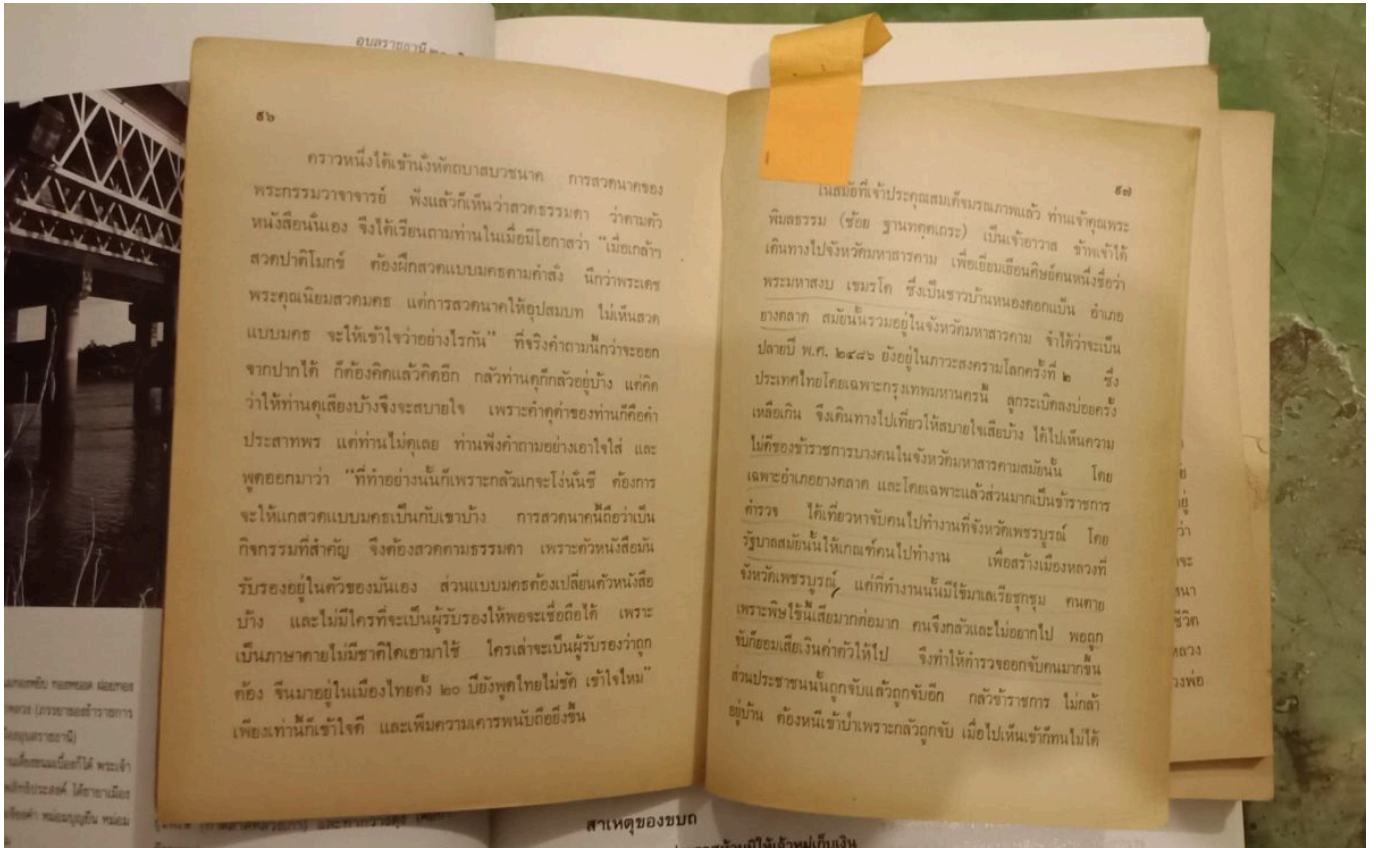 อุบลราชธานี
๕๖
คราวหนึ่งได้เข้านั่งหัตถบาสบวชนาค การสวดนาคของ
พระกรรมวาจาจารย์ ฟังแล้วก็เห็นว่าสวดธรรมดา ว่าตามตัว
หนังสือนั่นเอง จึงได้เรียนถามท่านในเมื่อมีโอกาสว่า “เมื่อเกล้าฯ
สวดปาติโมกข์ ต้องฝึกสวดแบบมคธตามคำสั่ง นึกว่าพระเดช
พระคุณนิยมสวดมคธ แต่การสวดนาคให้อุปสมบท ไม่เห็นสวด
แบบมคธ จะให้เข้าใจว่าอย่างไรกัน” ที่จริงคำถามนี้กว่าจะออก
จากปากได้ ก็ต้องคิดแล้วคิดอีก กลัวท่านดุก็กลัวอยู่บ้าง แต่คิด
ว่าให้ท่านดุเสียงบ้างจึงจะสบายใจ เพราะคำดุด่าของท่านก็คือคำ
ประสาทพร แต่ท่านไม่ดุเลย ท่านฟังคำถามอย่างเอาใจใส่ และ
พูดออกมาว่า “ที่ทำอย่างนั้นก็เพราะกลัวแกจะโง่นั่นซี ต้องการ
จะให้แกสวดแบบมคธเป็นกับเขาบ้าง การสวดนาคนี้ถือว่าเป็น
กิจกรรมที่สำคัญ จึงต้องสวดตามธรรมดา เพราะตัวหนังสือมัน
รับรองอยู่ในตัวของมันเอง ส่วนแบบมคธต้องเปลี่ยนตัวหนังสือ
บ้าง และไม่มีใครที่จะเป็นผู้รับรองให้พอจะเชื่อถือได้ เพราะ
เป็นภาษาตายไม่มีชาติใดเอามาใช้ ใครเล่าจะเป็นผู้รับรองว่าถูก
ต้อง จีนมาอยู่ในเมืองไทยตั้ง ๒๐ ปียังพูดไทยไม่ชัด เข้าใจไหม”
เพียงเท่านี้ก็เข้าใจดี และเพิ่มความเคารพนับถือยิ่งขึ้น
๕๗
ในสมัยที่เจ้าประคุณสมเด็จมรณภาพแล้ว ท่านเจ้าคุณพระ
พิมลธรรม (ช้อย ฐานทตฺตเถระ) เป็นเจ้าอาวาส ข้าพเจ้าได้
เดินทางไปจังหวัดมหาสารคาม เพื่อเยี่ยมเยือนศิษย์คนหนึ่งชื่อว่า
พระมหาสงบ เขมรโต ซึ่งเป็นชาวบ้านหนองตอกแป้น อำเภอ
ยางตลาด สมัยนั้นรวมอยู่ในจังหวัดมหาสารคาม จำได้ว่าจะเป็น
ปลายปี พ.ศ. ๒๔๘๖ ยังอยู่ในภาวะสงครามโลกครั้งที่ ๒ ซึ่ง
ประเทศไทยโดยเฉพาะกรุงเทพมหานครนี้ ลูกระเบิดลงบ่อยครั้ง
เหลือเกิน จึงเดินทางไปเที่ยวให้สบายใจเสียบ้าง ได้ไปเห็นความ
ไม่ดีของข้าราชการบางคนในจังหวัดมหาสารคามสมัยนั้น โดย
เฉพาะอำเภอยางตลาด และโดยเฉพาะแล้วส่วนมากเป็นข้าราชการ
ตำรวจ ได้เที่ยวหาจับคนไปทำงานที่จังหวัดเพชรบูรณ์ โดย
รัฐบาลสมัยนั้นให้เกณฑ์คนไปทำงาน เพื่อสร้างเมืองหลวงที่
จังหวัดเพชรบูรณ์ แต่ที่ทำงานนั้นมีไข้มาเลเรียชุกชุม คนตาย
เพราะพิษไข้นี้เสียมากต่อมาก คนจึงกลัวและไม่อยากไป พอถูก
จับก็ยอมเสียเงินค่าตัวให้ไป จึงทำให้ตำรวจออกจับคนมากขึ้น
ส่วนประชาชนนั้นถูกจับแล้วถูกจับอีก กลัวข้าราชการ ไม่กล้า
อยู่บ้าน ต้องหนีเข้าป่าเพราะกลัวถูกจับ เมื่อไปเห็นเข้าก็ทนไม่ได้
สาเหตุของขบถ